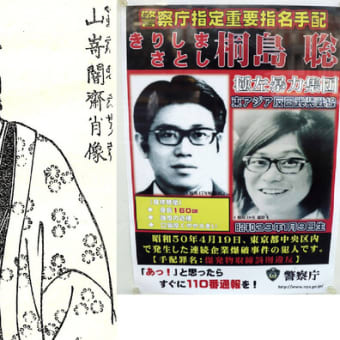 山嵜闇齋肖像
警察庁指定重要指名手配
きりしま
さとし
桐島 聡
極左暴力集団
東アジア反日武装戦線
身長160cm
昭和29年1月9日生
昭和50年4月19日、東京都中央区内
で発生した連続企業爆破事件の犯人です。
【手配罪名:爆発物取締罰則違反】
「あっ!」と思ったら
すぐに110番通報を!
警察庁